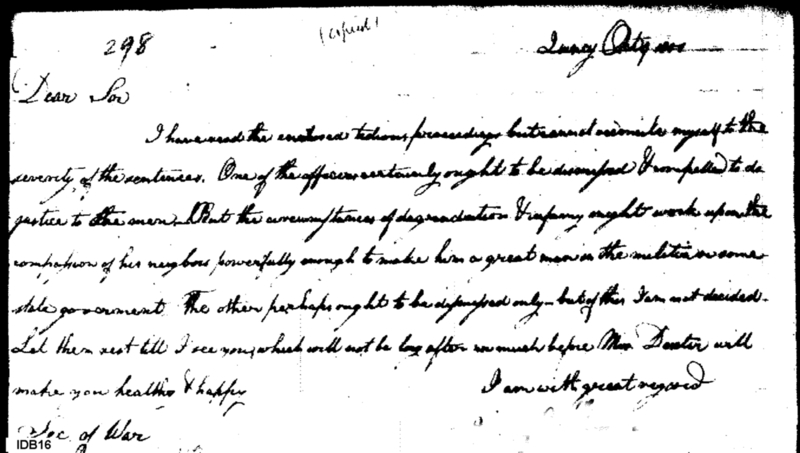 298 (copied)
Quincy Oct 9 1800
Dear Sir
I have read the enclosed tedious proceedings but cannot reconcile myself to the
severity of the sentences. One of the officers certainly ought to be dismissed & compelled to do
justice to the men. But the circumstances of degradation & infamy might work upon the
compassion of his neighbors powerfully enough to make him a great man in the militia or some
state goverment. The other perhaps ought to be dismissed only - but of this I am not decided.
Let them rest till I see you, which will not be long after or much before Mrs Dexter will
make you healthy & happy
I am with great regard
Sec of War
IDB16